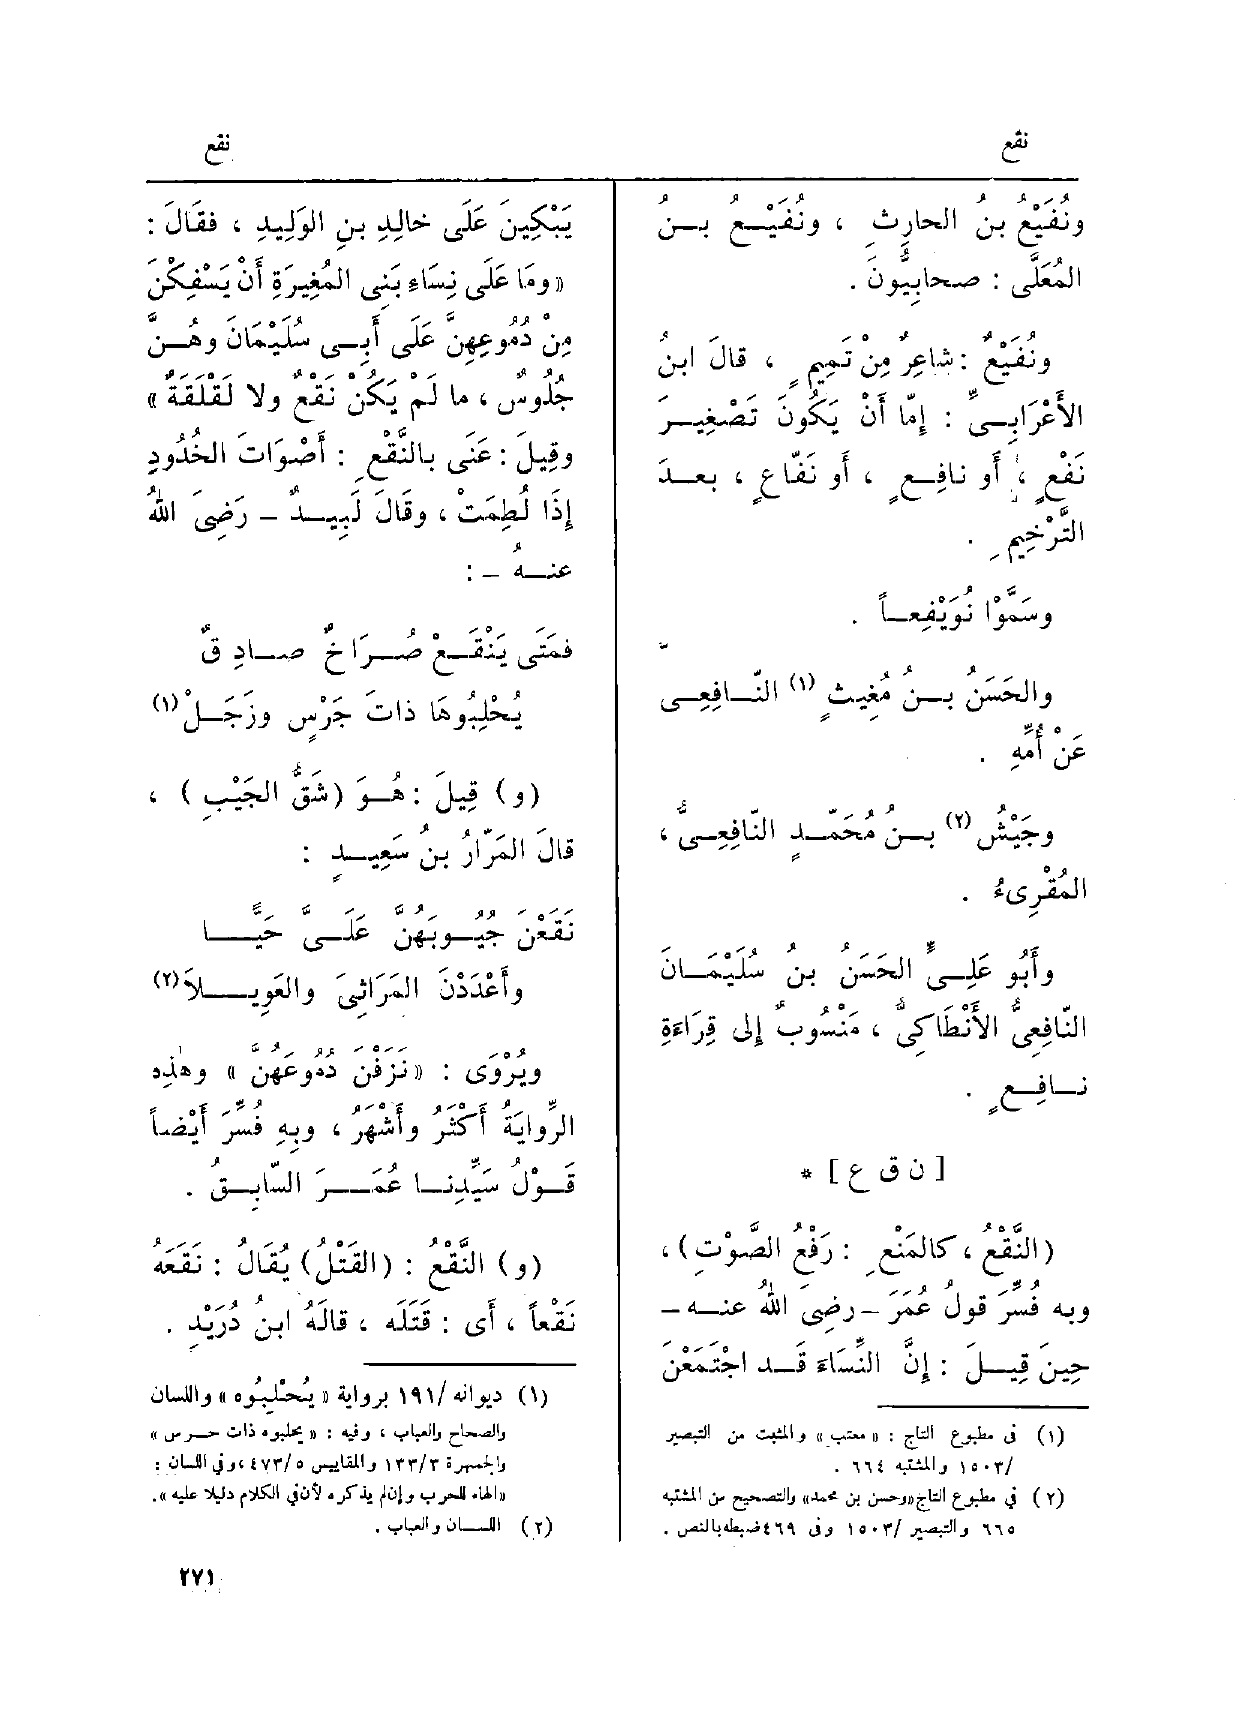 نقع
نفع
ونُفَيْعُ بنُ الحارِثِ ، ونُفَيْعُ بنُ
المُعَلَّى : صحابِيُّونَ .
ونُفَيْعٌ : شاعِرٌ مِنْ تَمِيمٍ ، قالَ ابنُ
الأَعْرَابِىِّ : إِمّا أَنْ يَكُونَ تَصْغِيرَ
نَفْعٍ ، أَو نافِعٍ ، أَو نَفّاعٍ ، بعدَ
التَّرْخِيمِ .
وسَمَّوْا نُوَيْفِعاً .
والحَسَنُ بنُ مُغِيثٍ (١) النّافِعِى
عَنْ أُمِّهِ .
وجَيْشُ (٢) بنُ مُحَمّدٍ النّافِعِىُّ ،
المُقْرِىءُ .
وأَبُو عَلِىٍّ الحَسَنُ بنُ سُلَيْمَانَ
النّافِعِىُّ الأَنْطَاكِىُّ ، مَنْسُوبٌ إِلى قِرَاءَةِ
نافِعٍ .
[ ن ق ع ] *
(النَّقْعُ ، كالمَنْعِ : رَفْعُ الصَّوْتِ) ،
وبه فُسِّرَ قولُ عُمَرَ - رضِىَ اللهُ عنه -
حِينَ قِيلَ : إِنَّ النِّسَاءَ قد اجْتَمَعْنَ
(١) فى مطبوع التاج : « معتب » والمثبت من التبصير
/١٥٠٣ والمشتبه ٦٦٤ .
(٢) في مطبوع التاج «وحسن بن محمد» والتصحيح من المشتبه
٦٦٥ والتبصير /١٥٠٣ وفى ٤٦٩ ضبطه بالنص .
يَبْكِينَ عَلَى خالِدِ بنِ الوَلِيدِ ، فقَالَ :
« ومَا عَلَى نِسَاءِ بَنِى المُغِيرَةِ أَنْ يَسْفِكْنَ
مِنْ دُمُوعِهِنَّ عَلَى أَبِى سُلَيْمَانَ وهُنَّ
جُلُوسٌ ، ما لَمْ يَكُنْ نَقْعٌ ولا لَقْلَقَةٌ »
وقِيلَ : عَنَى بالنَّقْعِ : أَصْوَاتَ الخُدُودِ
إِذَا لُطِمَتْ ، وقَالَ لَبِيدٌ - رَضِىَ اللهُ
عنهُ - :
فمَتَى يَنْقَعْ صُرَاخٌ صادِقٌ
يُحْلِبُوهَا ذاتَ جَرْسٍ وزَجَلْ (١)
(و) قِيلَ : هُوَ (شَقُّ الجَيْبِ ) ،
قالَ المَرّارُ بنُ سَعِيدٍ :
نَقَعْنَ جُيُوبَهُنَّ عَلَىَّ حَيًّا
وأَعْدَدْنَ المَرَاثِىَ والعَوِيلاَ (٢)
ويُرْوَى : « نَزَفْنَ دُمُوعَهُنَّ » وهٰذِه
الرِّوايَةُ أَكْثَرُ وأَشْهَرُ ، وبِهِ فُسِّرَ أَيْضاً
قَوْلُ سَيِّدِنا عُمَرَ السّابِقُ .
(و) النَّقْعُ : (القَتْلُ) يُقَالُ : نَقَعَهُ
نَقْعاً ، أى : قَتَلَه ، قالَهُ ابنُ دُرَيْدٍ .
(١) ديوانه /١٩١ برواية « يُحْلِبُوه » واللسان
والصحاح والعباب ، وفيه : « يحلبوه ذات جرس »
والجمهرة ١٣٣/٣ والمقاييس ٤٧٣/٥ ، وفى اللسان :
«الهاء للحرب وإن لم يذكره لأن في الكلام دليلا عليه ».
(٢) اللسان والعباب .
٢٧١